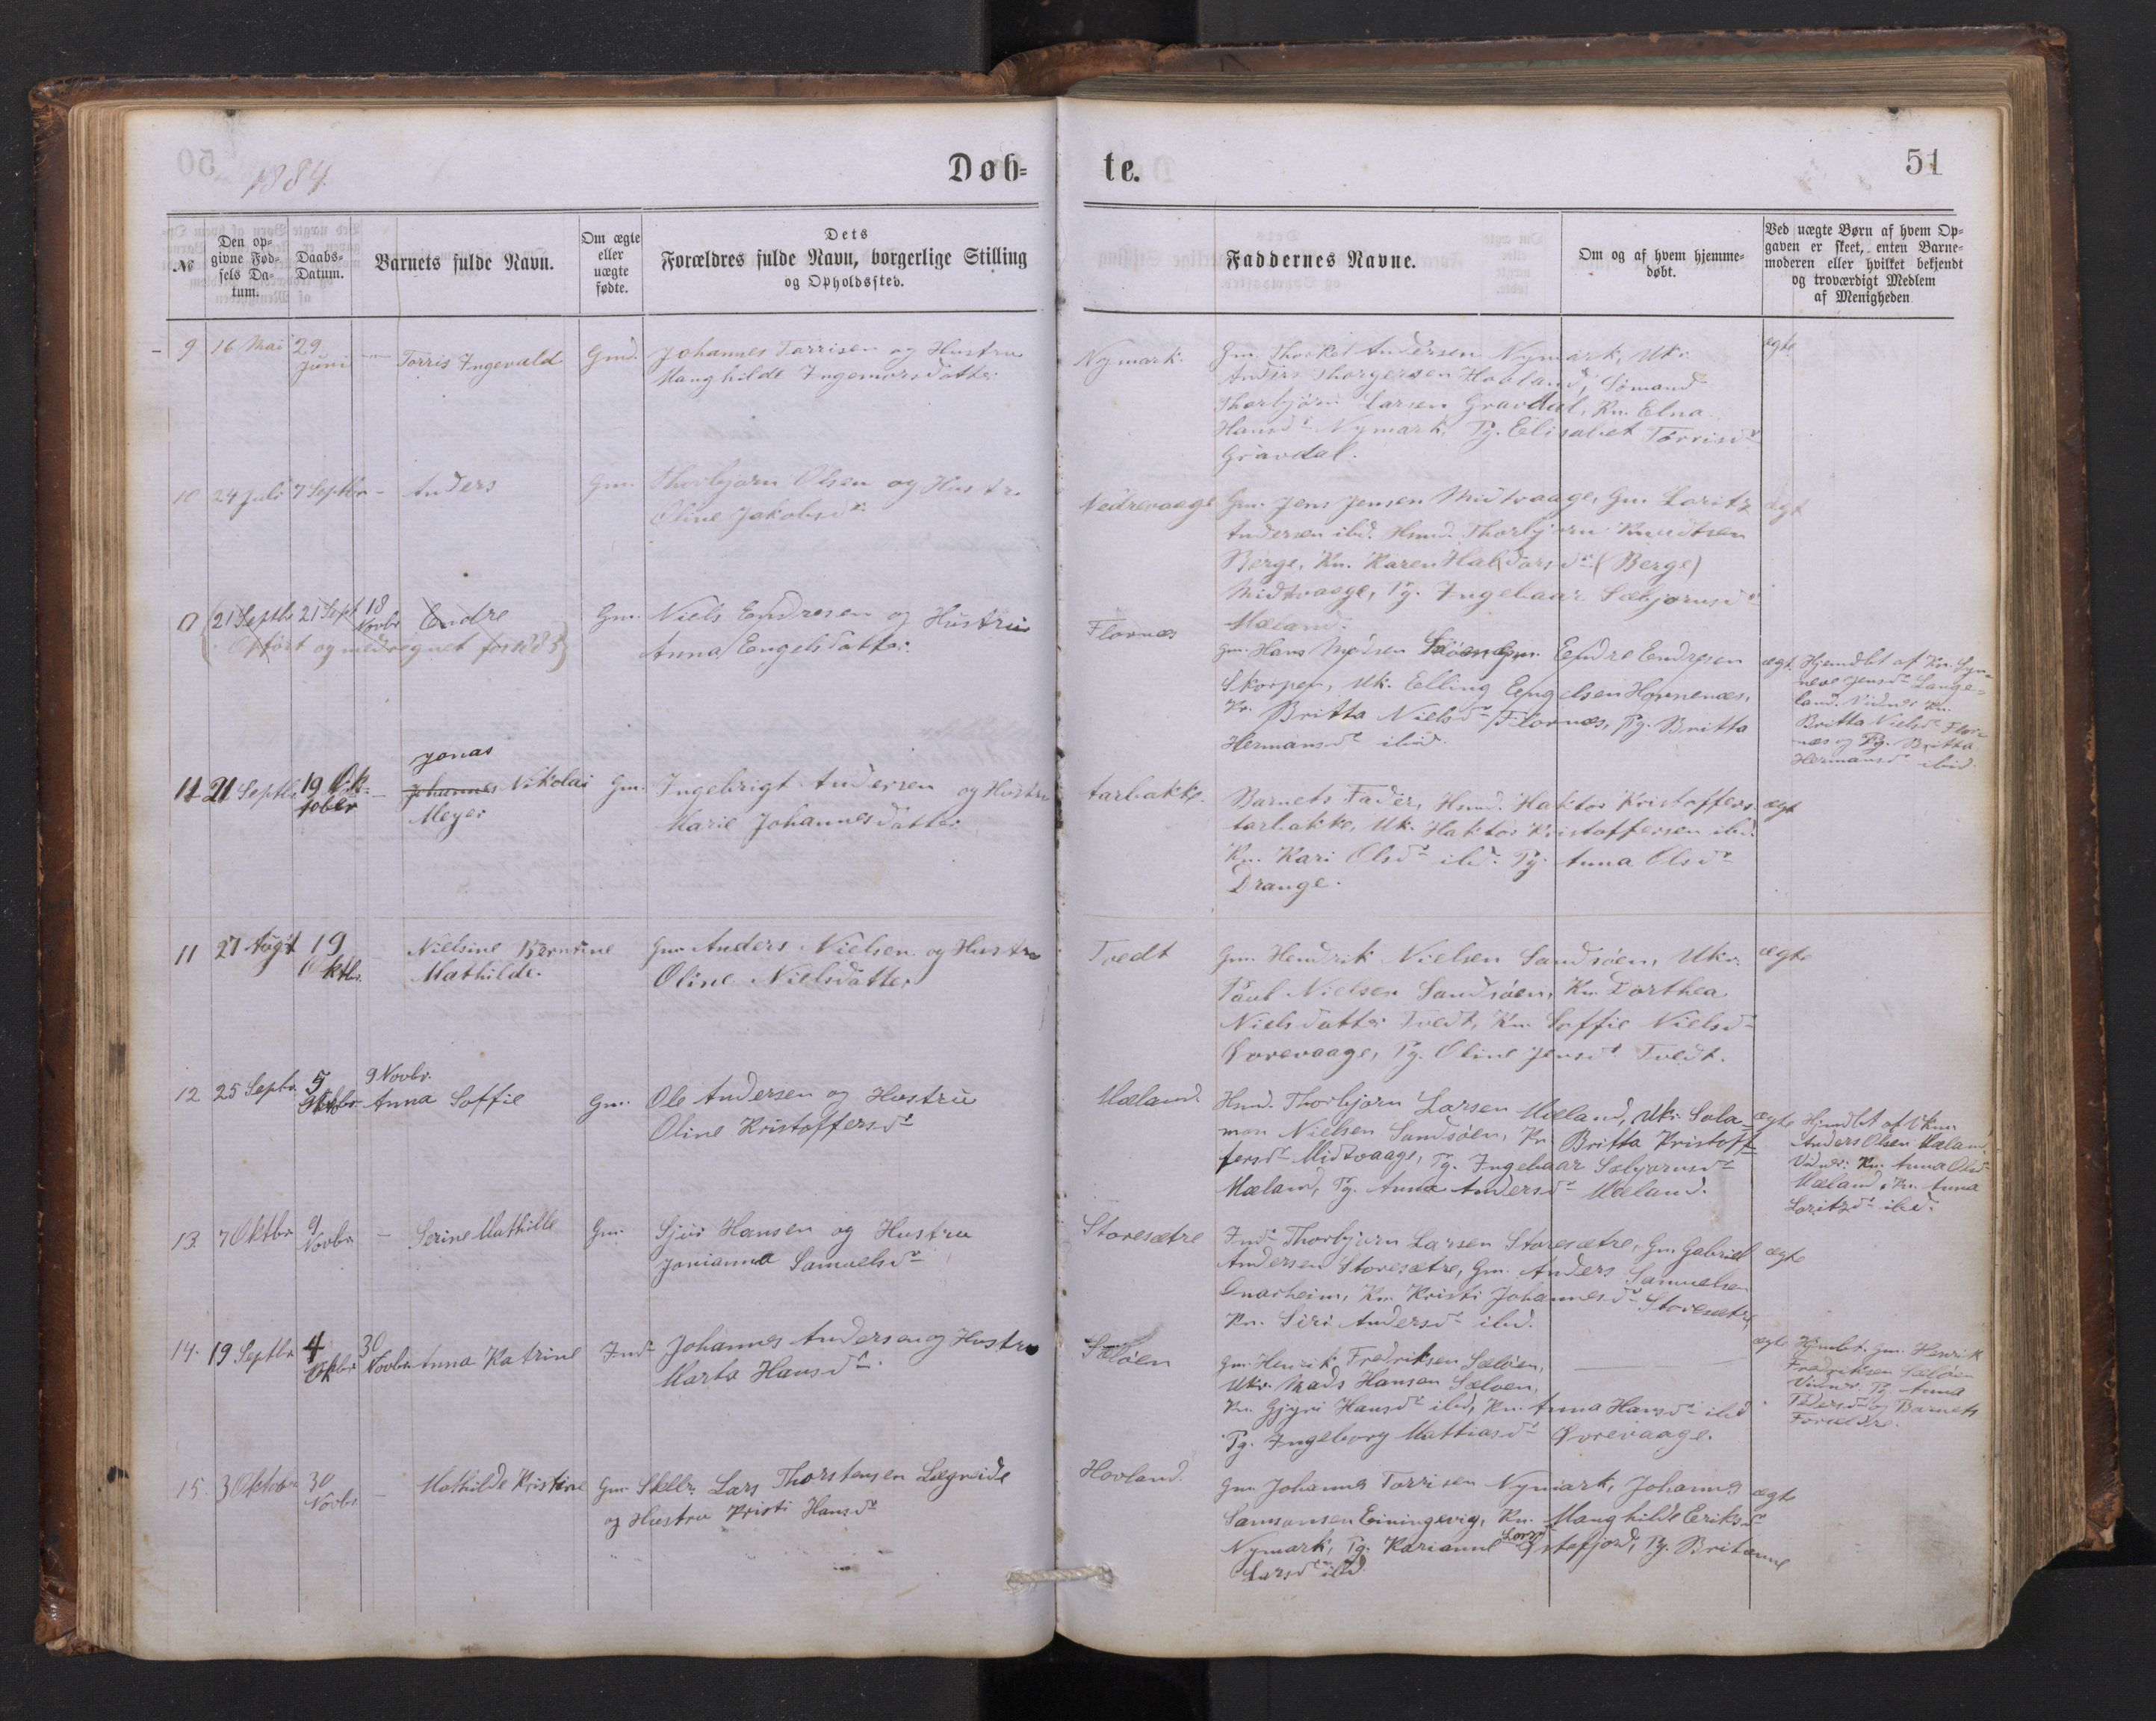 1884.
Døb=
te.
51
№
Den op-
givne Fød-
sels Da-
tum.
Daabs-
Datum.
Barnets fulde Navn.
Om ægte
eller
uægte
fødte.
Dets
Forældres fulde Navn, borgerlige Stilling
og Opholdssted.
Faddernes Navne.
Om og af hvem hjemme-
døbt.
Ved uægte Børn af hvem Op-
gaven er skeet, enten Barne-
moderen eller hvilket bekjendt
og troværdigt Medlem
af Menigheden
9 16 Mai 29 Juni Torris Ingevald Gmd. Johannes Torrisen og Hustru
Manghilde Ingemorsdatter
Nymark.
Gm. Thorkel Andersen Nymark, Uk.
Anders Thorgersen Hovland, Sømand
Thorbjørn Larsen Gravdal, Kn. Elna
Hansdr Nymark, Pg. Elisabet Torrisdr
Gravdal.
ægte
10 24 Juli 7 Septbr Anders Gm. Thorbjørn Olsen og Hustr.
Oline Jakobsdr
Nedrevaage
Gm. Jens Jensen Midtvaage, Gm. Loritz
Andersen ibd. Hsmd. Thorbjørn Knudtsen
Berge, Kn. Karen Haldorsdr (Berge)
Midtvaage, Pg. Ingebaar Sæbjørnsdr
Mæland.
ægt
21 Septbr 21 Sept 18 Novbr Endre Gm. Niels Endresen og Hustru
Opført og medregnet for
Anna Engelsdatter.
Flornæs
Gm. Hans Mødsen Gm. Endre Endresen
Skorpen, Uk. Elling Engelsen Hornenæs,
Kn. Britta Nielsdr Flornæs, Pg. Britta
Hermansdr ibid.
ægt
Hjemdbt af Kn. Syn-
neve Jensdr Lange-
land. Vidner Kn.
Britta Nielsdr Flor-
næs og Pg. Britta
Hermansdr ibid.
Jonas
11 21 Septbr 19 Ok- Johannes Nikolai Gm. Ingebrigt Andersen og Hustru
tober
Meyer
Marie Johannesdatter
tarbakke.
Barnets Fader, Hsmd. Haktor Kristoffers.
tarbakke, Uk. Haktor Kristoffersen ibd.
Kn. Kari Olsdr ibd. Pg. Anna Olsdr
Drange.
ægt
11 27 Augt 19 Oktbr. Nielsine Berntine Gm. Anders Nielsen og Hustru
Mathilde.
Oline Nielsdatter
Tvedt
Gm. Hendrik Nielsen Sandsøen, Ukr.
Paul Nielsen Sandsøen, Kn. Dorthea
Nielsdatter Tvedt, Kn. Soffie Nielsdr
Øvrevaage, Pg. Oline Jensdr Tvedt.
ægte
12 25 Septbr. 5 Oktbr 9 Novbr. Anna Soffie Gm. Ole Andersen og Hustru
Oline Kristoffersdr
Mæland
Hsmd. Thorbjørn Larsen Mæland, Uk. Salo-
mon Nielsen Sandsøen, Kn. Britta Kristoff-
fersdr Midtvaage, Pg. Ingebaar Sæbjørnsdr
Mæland, Pg. Anna Andersdr Mæland.
ægte
Hjemdbt af
Anders Olsen Mæland.
Vidner: Kn. Anna Olsdr
Mæland, Kn. Anna
Loritzdr ibd.
13. 7 Oktbr 9 Novbr. Serine Mathilde Gm. Sjur Hansen og Hustru
Jonianna Samuelsdr
Storesætre
Indr Thorbjørn Larsen Storesætre, Gm. Gabriel
Andersen Storesætre, Gm. Anders Samuelsen
Gnarheim, Kn. Kristi Johannesdr Storesætre
Kn. Siri Andersdr ibd.
ægte
14. 19 Septbr 4 Oktbr 30 Novbr Anna Katrine Indr Johannes Andersen og Hustru
Marta Hansdr.
Sæløen
Gm. Henrik Fredriksen Sæløen,
Ukr. Mads Hansen Sæløen,
Kn. Gjyri Hansdr ibd, Kn. Anna Hansdr ibd
Pg. Ingeborg Mathiasdr Øvrevaage.
ægte
Hjmdbt. Gm. Henrik
Fredriksen Sæløen
Vidner. Pg. Anna
Pedersdr og Barnets
Forældre.
15. 3 Oktober 30 Novbr Mathilde Kristine Gm. Skollr. Lars Thorstensen Lægreide
og Hustru Kristi Hansdr
Hovland.
Gm. Johannes Torrisen Nymark, Johannes
Samsonsen Einingevig, Kn. Manghilde Eriksdr
Nymark, Pg. Karianne Larsdr Ystefjord, Pg. Britanne
Larsdr ibd.
ægte